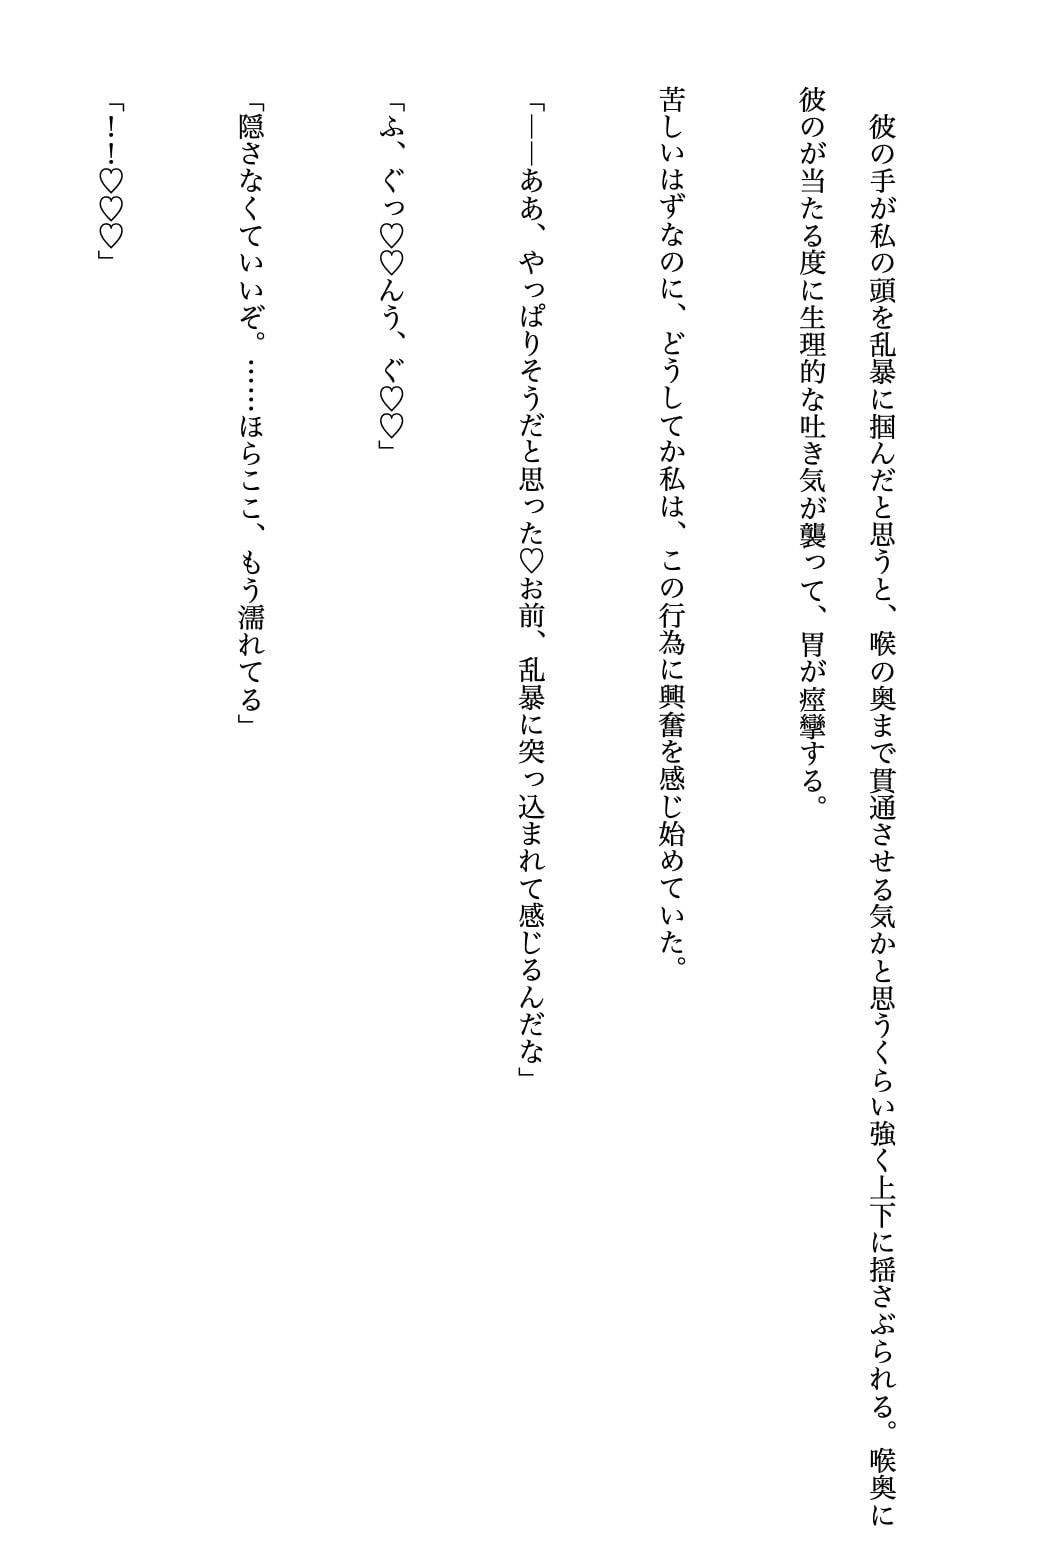 彼の手が私の頭を乱暴に掴んだと思うと、喉の奥まで貫通させる気かと思うくらい強く上下に揺さぶられる。喉奥に
彼のが当たる度に生理的な吐き気が襲って、胃が痙攣する。
苦しいはずなのに、どうしてか私は、この行為に興奮を感じ始めていた。
「――ああ、やっぱりそうだと思った♡お前、乱暴に突っ込まれて感じるんだな」
「ふ、ぐっ♡♡んう、ぐ♡♡」
「隠さなくていいぞ。……ほらここ、もう濡れてる」
「！！♡♡♡」